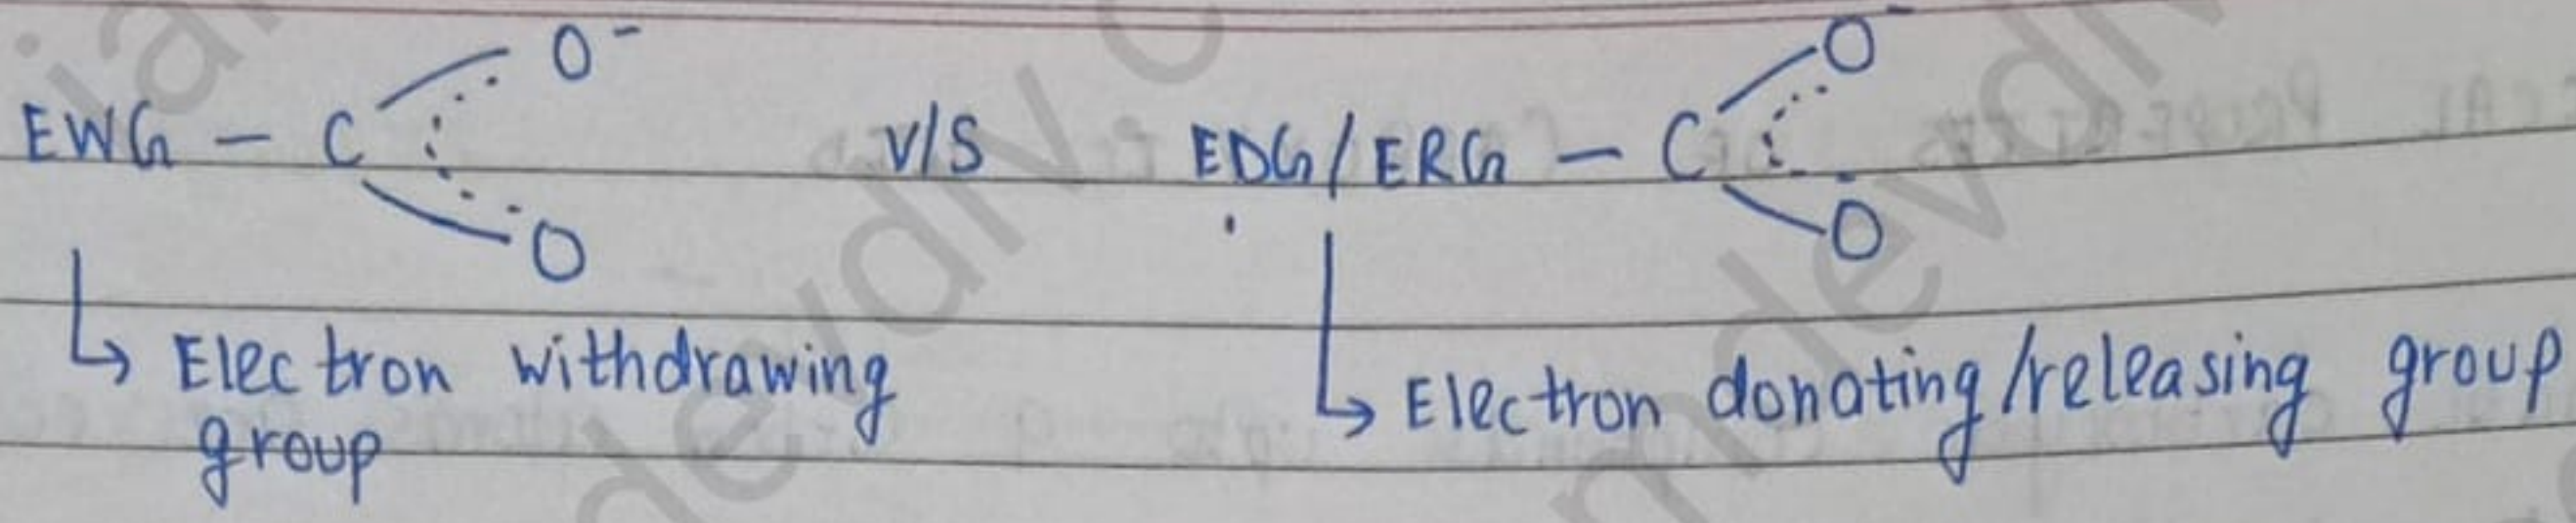 O⁻ O⁻
EWG – C V/S EDG/ERG – C
O O
↳ Electron withdrawing
group
↳ Electron donating/releasing group